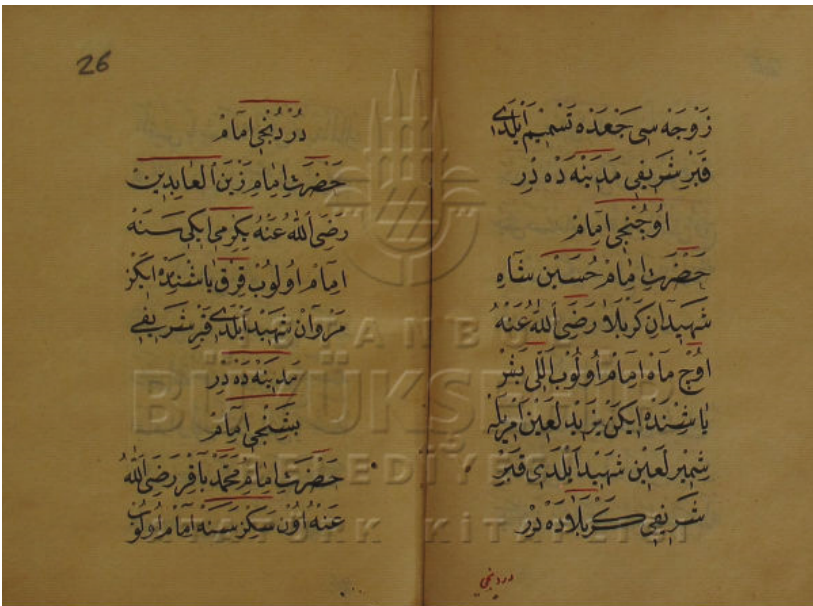 زَوْجَه سِی جَعْدَه تَسْمِیْم اَیْلَدِی
قَبْرِ شَرِیفِی مَدِینَه دَه دِرْ
اُوچُنْجِی اِمَامْ
حَضْرَتِ اِمَامْ حُسَیْن شَاهِ
شَهِیدَانِ كَرْبَلَا رَضِیَ اللهُ عَنْهُ
اوُچ مَاه اِمَامْ اُولُوبْ اَللِی بَشْ
یَاشِنْدَه اِیكَنْ یَزِید لَعِین اَمْرِیلَه
شِمِیر لَعِین شَهِید اَیْلَدِی قَبْرِ
شَرِیفِی كَرْبَلَادَه دِرْ
دردنجی
26
دُرْدُنْجِی اِمَامْ
حَضْرَتِ اِمَامِ زَیْنَ الْعَابِدِینْ
رَضِیَ اللهُ عَنْهُ یِكِرْمِی اِیكِی سَنَه
اِمَامْ اُولُوبْ قِرْق یَاشِنْدَه اِیكَنْ
مَرْوَانْ شَهِید اَیْلَدِی قَبْرِ شَرِیفِی
مَدِینَه دَه دِرْ
بَشِنْجِی اِمَامْ
حَضْرَتِ اِمَامِ مُحَمَّد بَاقِر رَضِیَ اللهُ
عَنْهُ اُوُنْ سَكِزْ سَنَه اِمَامْ اُولُوبْ
ISTANBUL
BÜYÜKŞEHİR
BELEDİYESİ
ATATÜRK KİTAPLIĞI